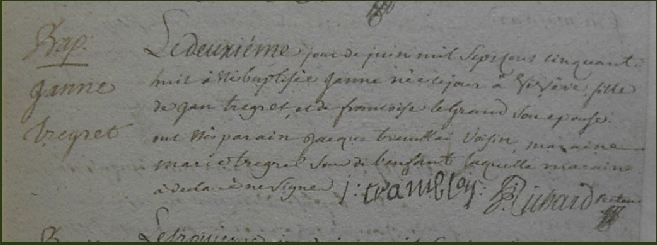 Bap:
Janne
tregret
Le deuxiéme jour de juin mil sept cens cinquante
huit a été baptisée janne née ce jour à fille
de jan tregret, et de francoise le grand son epouse.
ont été parain jacque voisin, maraine
marie tregret Sœur de l'enfant laquelle maraine
a declaré ne signe j: tramblay: Rubard Recteur